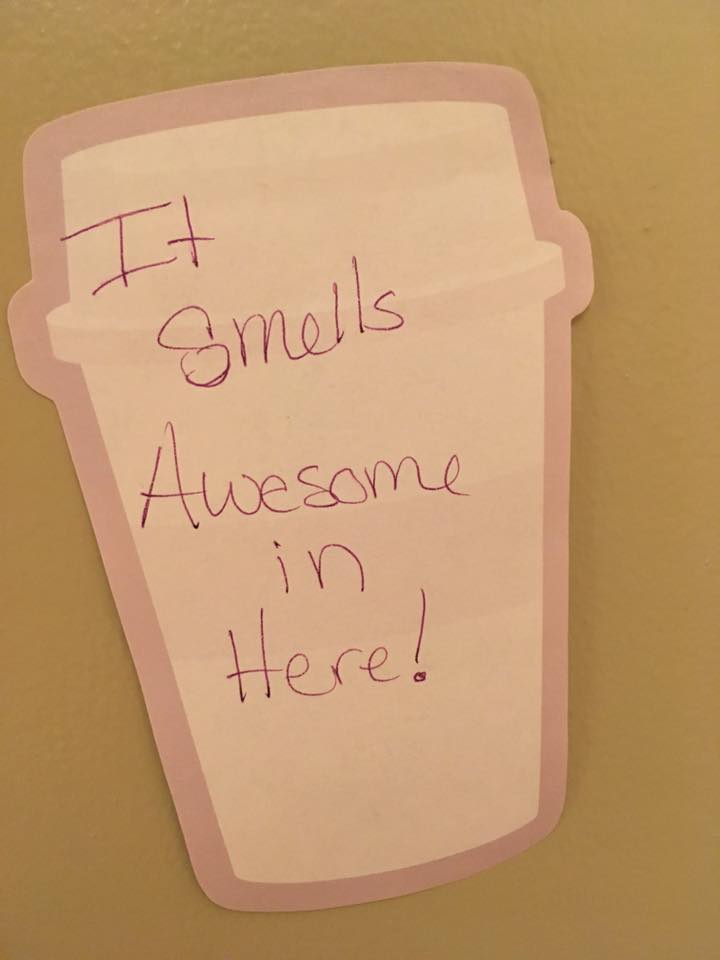 It
Smells
Awesome
in
Here!